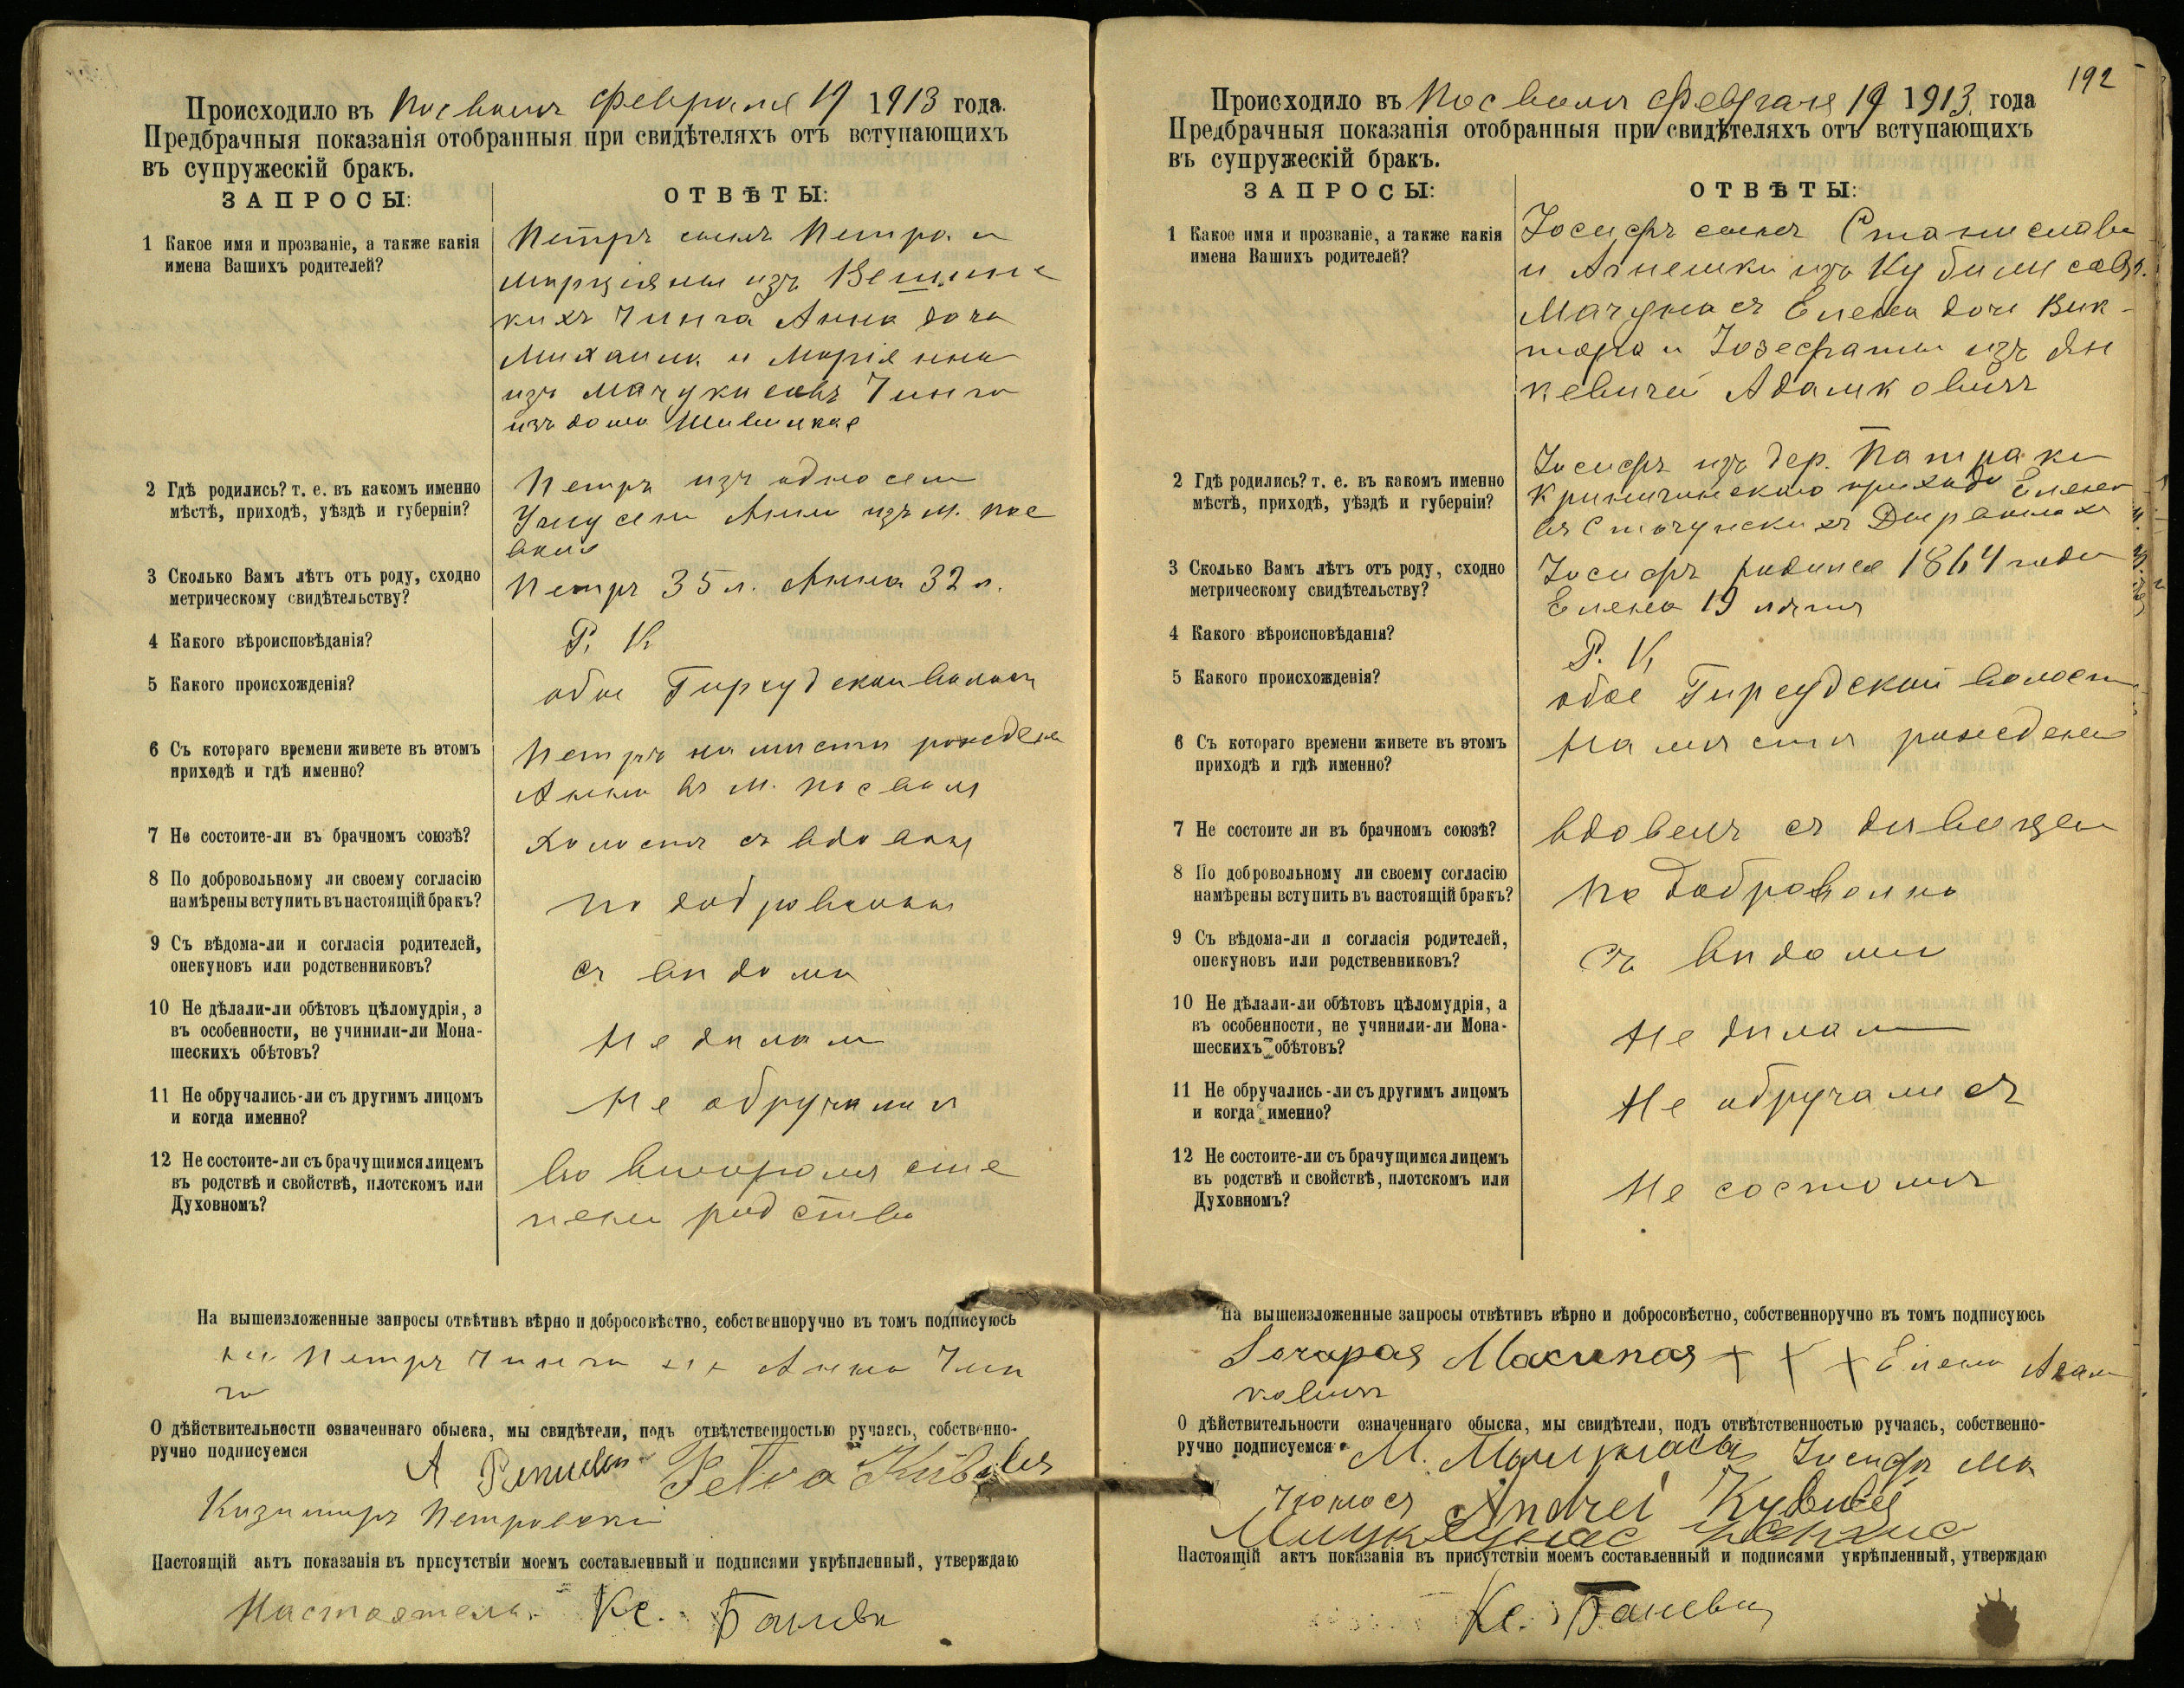 Происходило въ Посволи Февраля 19 1913 года.
Предбрачныя показанія отобранныя при свидѣтеляхъ отъ вступающихъ
въ супружескій бракъ.
ЗАПРОСЫ:
ОТВѢТЫ:
1 Какое имя и прозваніе, а также какія
имена Вашихъ родителей?
Петръ сынъ Петра и
изъ
Чинга Анна дочь
Михаила и Маріянны
изъ Чинга
изъ дома
2 Гдѣ родились? т. е. въ какомъ именно
мѣстѣ, приходѣ, уѣздѣ и губерніи?
Петръ изъ
Анна изъ м. Пос
воля
3 Сколько Вамъ лѣтъ отъ роду, сходно
метрическому свидѣтельству?
Петръ 35 л. Анна 32 л.
4 Какого вѣроисповѣданія?
Р. К
5 Какого происхожденія?
обое Гирсудской волости
6 Съ котораго времени живете въ этомъ
приходѣ и гдѣ именно?
Петръ на мѣстѣ рожденія
Анна въ м. Посволи
7 Не состоите-ли въ брачномъ союзѣ?
Холостъ съ вдовою
8 По добровольному ли своему согласію
намѣрены вступить въ настоящій бракъ?
По добровольно
9 Съ вѣдома-ли и согласія родителей,
опекуновъ или родственниковъ?
Съ вѣдома
10 Не дѣлали-ли обѣтовъ цѣломудрія, а
въ особенности, не учинили-ли Мона-
шескихъ обѣтовъ?
Не дѣлали
11 Не обручались-ли съ другимъ лицомъ
и когда именно?
Не обручались
12 Не состоите-ли съ брачущимся лицемъ
въ родствѣ и свойствѣ, плотскомъ или
Духовномъ?
Во второмъ сте
пени родства
На вышеизложенные запросы отвѣтивъ вѣрно и добросовѣстно, собственноручно въ томъ подписуюсь
Петръ Чинга Анна Чин
га
О дѣйствительности означеннаго обыска, мы свидѣтели, подъ отвѣтственностью ручаясь, собственно-
ручно подписуемся
А
Казимиръ Петровскій
Настоящій актъ показанія въ присутствіи моемъ составленный и подписями укрѣпленный, утверждаю
Настоятель Кс.
192
Происходило въ Посволи Февраля 19 1913. года
Предбрачныя показанія отобранныя при свидѣтеляхъ отъ вступающихъ
въ супружескій бракъ.
ЗАПРОСЫ:
ОТВѢТЫ:
1 Какое имя и прозваніе, а также какія
имена Вашихъ родителей?
Іосифъ сынъ Станислава
и Агнешки изъ
Елена дочь Вик-
тора и Іозефаты изъ Ян
кевичей Адамковичъ
2 Гдѣ родились? т. е. въ какомъ именно
мѣстѣ, приходѣ, уѣздѣ и губерніи?
Іосифъ изъ дер. Патраки
прихода Елена
въ
3 Сколько Вамъ лѣтъ отъ роду, сходно
метрическому свидѣтельству?
Іосифъ родился 1864 года
Елена 19 лѣтъ
4 Какого вѣроисповѣданія?
Р. К
5 Какого происхожденія?
обое Гирсудской волости
6 Съ котораго времени живете въ этомъ
приходѣ и гдѣ именно?
На мѣстѣ рожденія
7 Не состоите ли въ брачномъ союзѣ?
вдовецъ съ дѣвицей
8 По добровольному ли своему согласію
намѣрены вступить въ настоящій бракъ?
По добровольно
9 Съ вѣдома-ли и согласія родителей,
опекуновъ или родственниковъ?
Съ вѣдома
10 Не дѣлали-ли обѣтовъ цѣломудрія, а
въ особенности, не учинили-ли Мона-
шескихъ обѣтовъ?
Не дѣлали
11 Не обручались-ли съ другимъ лицомъ
и когда именно?
Не обручались
12 Не состоите-ли съ брачущимся лицемъ
въ родствѣ и свойствѣ, плотскомъ или
Духовномъ?
Не состоимъ
На вышеизложенные запросы отвѣтивъ вѣрно и добросовѣстно, собственноручно въ томъ подписуюсь
+ + + Елена Адам
ковичъ
О дѣйствительности означеннаго обыска, мы свидѣтели, подъ отвѣтственностью ручаясь, собственно-
ручно подписуемся М. Іосифъ Ма
Andrei
Настоящій актъ показанія въ присутствіи моемъ составленный и подписями укрѣпленный, утверждаю
Кс. Баневич